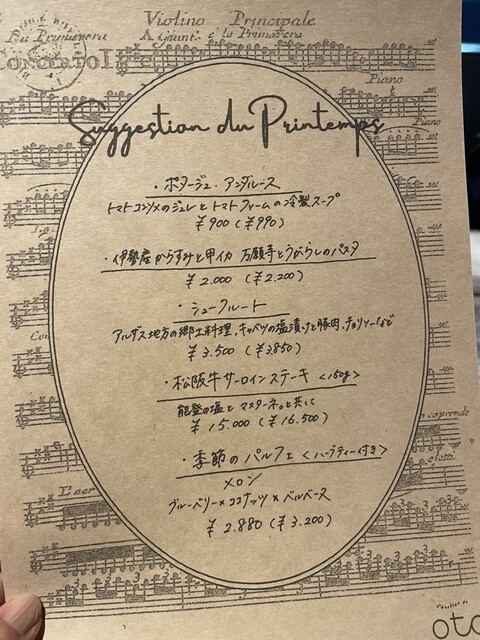 Violino Principale
La Primavera
A Giunt' è la Primavera
CONCERTO I
Piano
Piano
Suggestion du Printemps
・ポタージュ・アンダルース
トマトコンソメのジュレとトマトファームの冷製スープ
¥900 (¥990)
・伊勢産からすみと甲イカ 万願寺とうがらしのパスタ
¥2.000 (¥2.200)
・シュークルート
アルザス地方の郷土料理。キャベツの塩漬けと豚肉、チョリソーなど
¥3.500 (¥3.850)
・松阪牛サーロインステーキ <150g>
能登の塩とマスタードと共に
¥15.000 (¥16.500)
・季節のパルフェ <ハーブティー付き>
メロン
ブルーベリー×ココナッツ×ベルベーヌ
¥2.880 (¥3.200)
oto